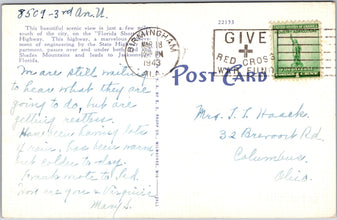 8509-3rd Av. N.
This beautiful scenic view is just a few miles
south of the city, on the "Florida Short
Highway. This highway, a marvelous
ment of engineering by the State High
partment, passes over and under both
Shades Mountains and leads to Jackson
Florida.
22153
BIRMINGHAM
MAR 18
PM
1943
ALA.
GIVE
+
RED CROSS
WAR FUND
POST CARD
We are still waiting
to hear what they are
going to do, but are
getting restless.
Have been having lots
of rain, has been warm
but colder today.
Frank wrote to Ed.
How are you & Virginia
Mary S.
Mrs. T. L. Haack
32 Brevoort Rd.
Columbus,
Ohio.